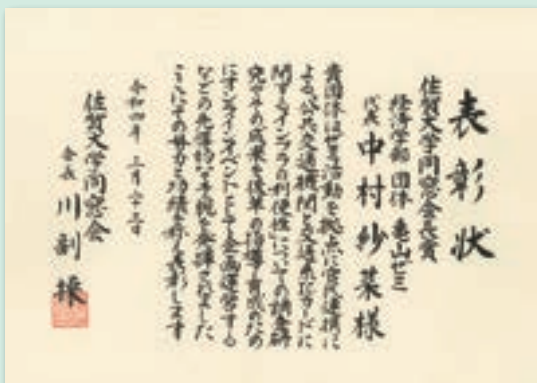 表彰状
佐賀大学同窓会長賞
経済学部 団体 亀山ゼミ
代表 中村紗菜様
貴団体はゼミ活動を拠点に官民連携に
よる公共交通機関と交通系ICカードに
関するインフラの利便性についての調査研
究やその成果を後輩の指導育成のため
にオンラインイベントとして企画運営する
などの先導的な手腕を発揮されました
ここにその努力と功績を称え表彰します
令和四年 三月
佐賀大学同窓会
会長